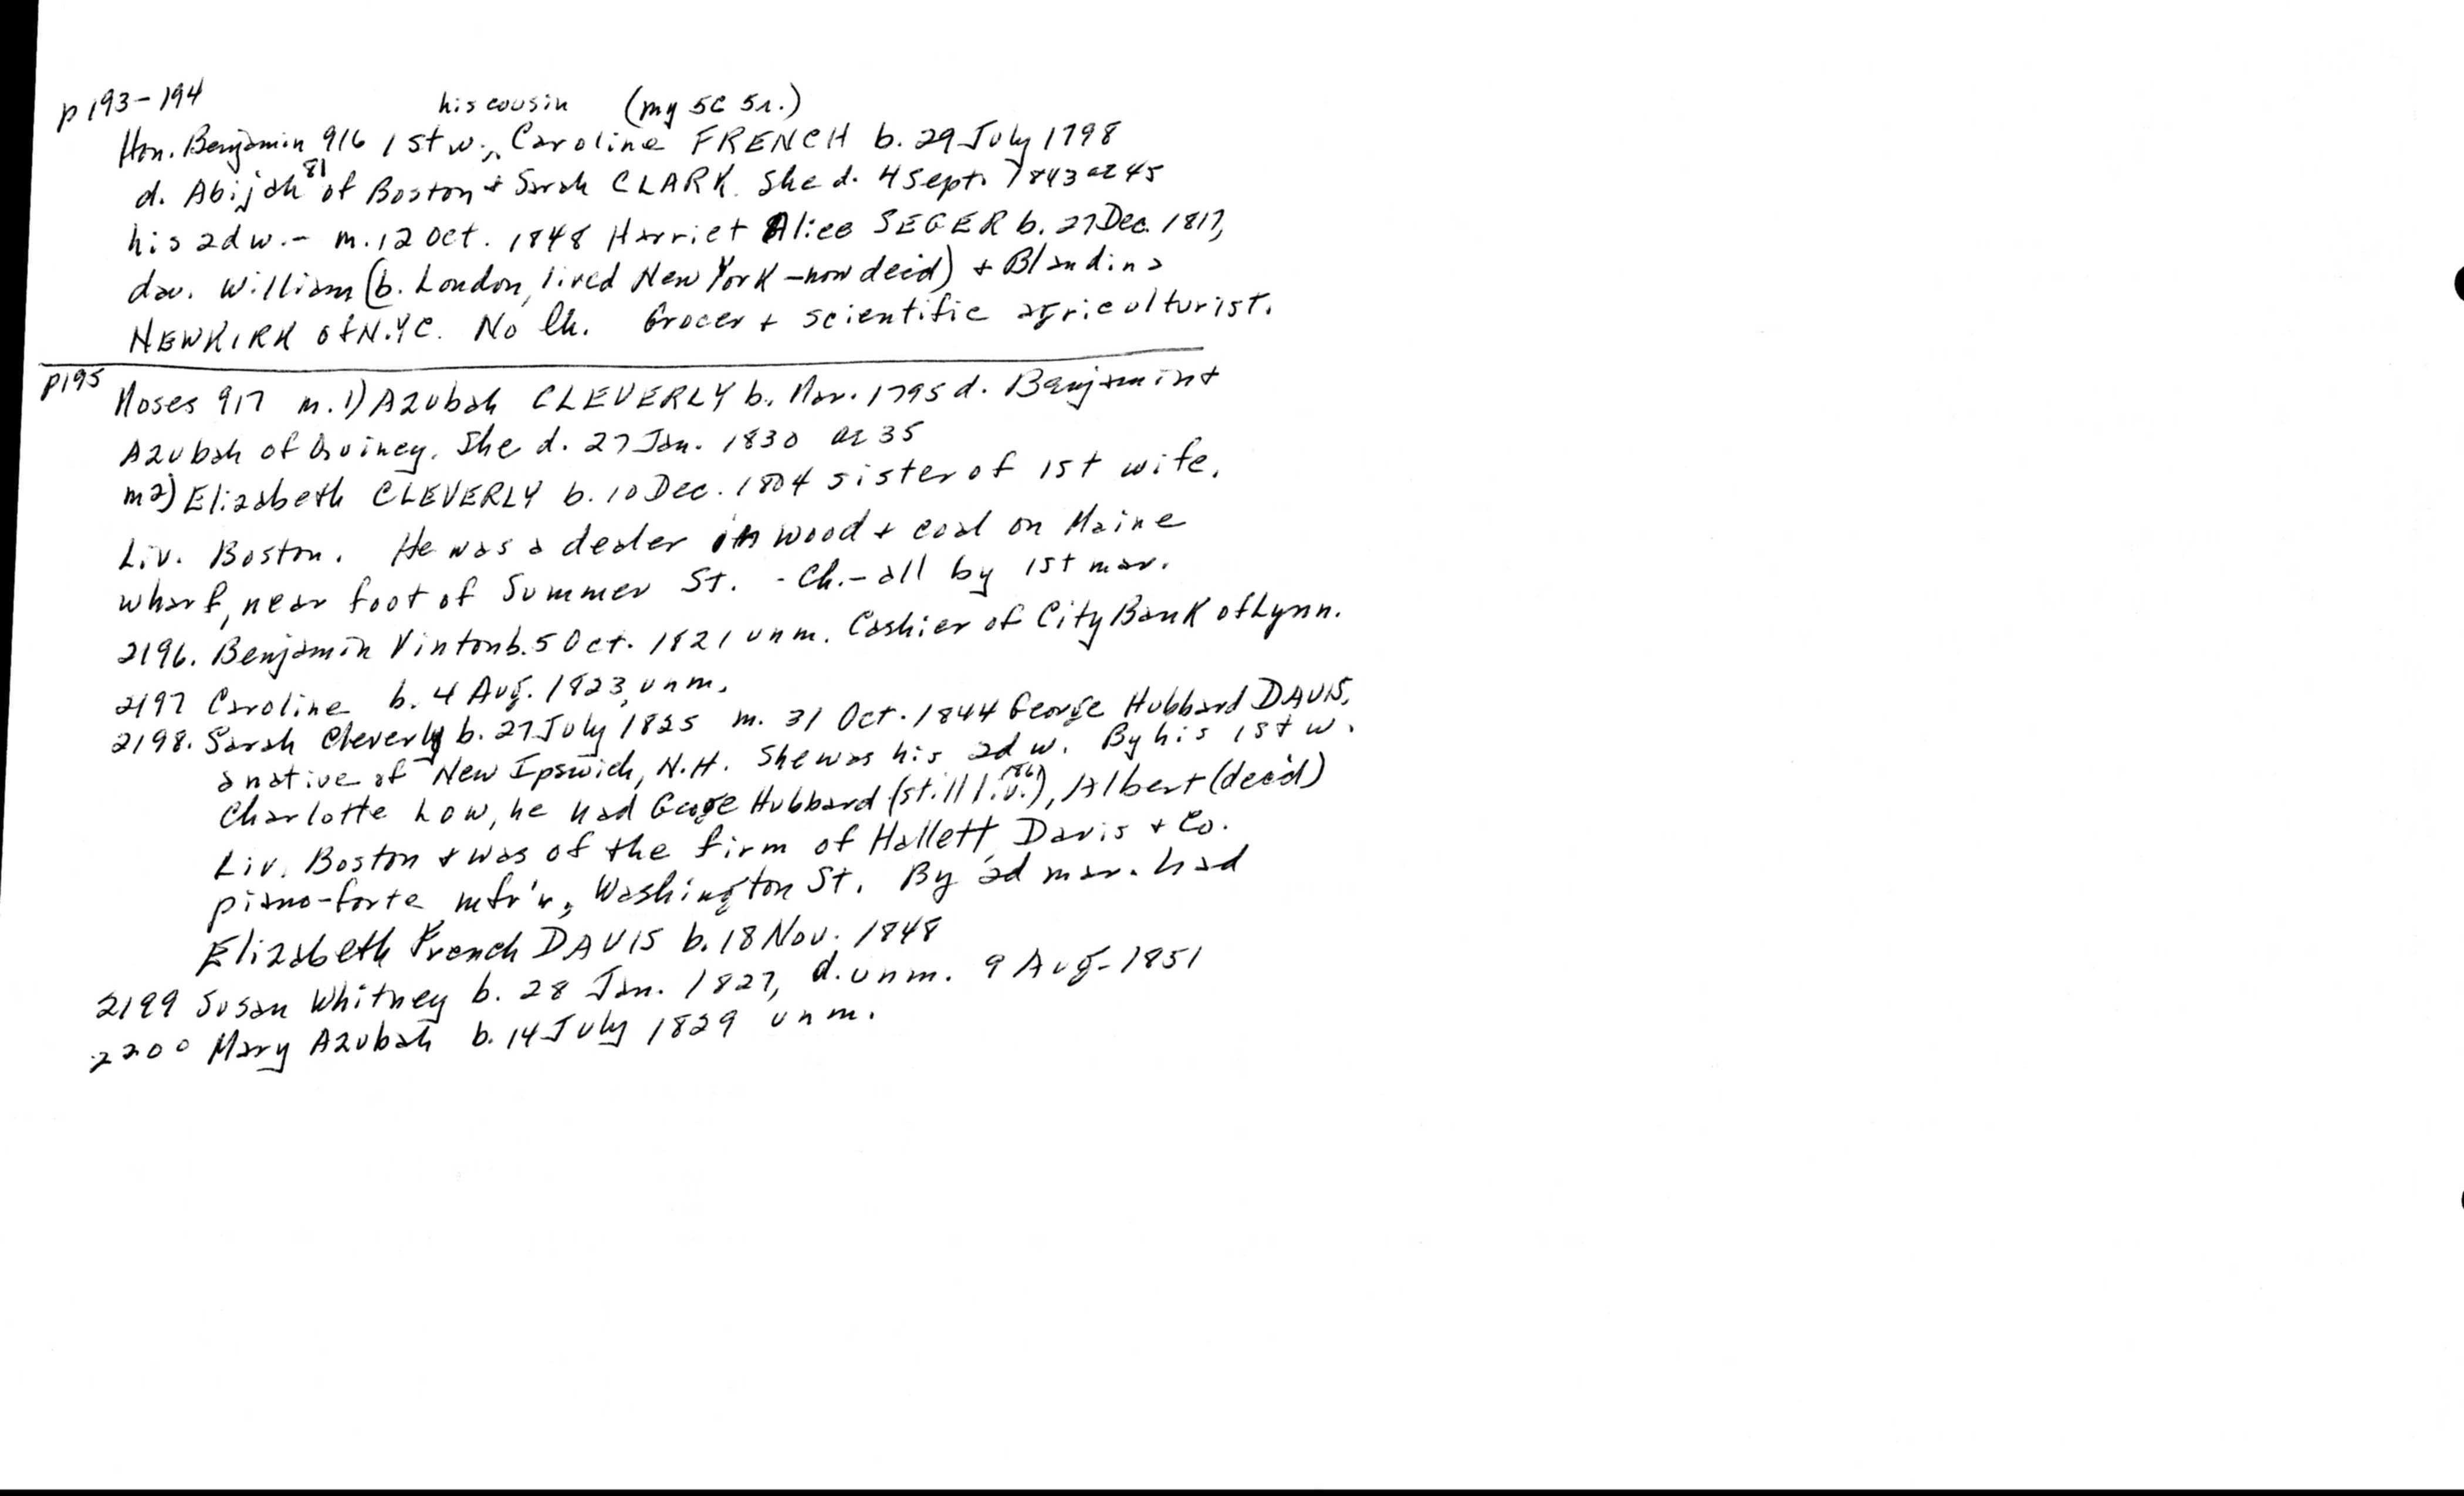 p193-194
his cousin (my 5c 5r.)
Hon. Benjamin 916 1st w., Caroline FRENCH b. 29 July 1798
d. Abijah 81 of Boston + Sarah CLARK. She d. 4 Sept. 1843 ae 45
his 2d w. - m. 12 Oct. 1848 Harriet Alice SEGER b. 27 Dec. 1817,
dau. William (b. London, lived New York - now dec'd) + Blandina
NEWKIRK of N.Y.C. No Ch. Grocer + scientific agriculturist.
p195
Moses 917 m. 1) Azubah CLEVERLY b. Mar. 1795 d. Benjamin +
Azubah of Quincy. She d. 27 Jan. 1830 ae 35
m2) Elizabeth CLEVERLY b. 10 Dec. 1804 sister of 1st wife.
Liv. Boston. He was a dealer in wood + coal on Maine
wharf, near foot of Summer St. - Ch. - all by 1st mar.
2196. Benjamin Vinton b. 5 Oct. 1821 unm. Cashier of City Bank of Lynn.
2197 Caroline b. 4 Aug. 1823, unm.
2198. Sarah Cleverly b. 27 July 1825 m. 31 Oct. 1844 George Hubbard DAVIS,
a native of New Ipswich, N.H. She was his 2d w. By his 1st w.
Charlotte How, he had George Hubbard (still liv.), Albert (dec'd)
Liv. Boston + was of the firm of Hallett, Davis + Co.
piano-forte mfr'r, Washington St. By 2d mar. had
Elizabeth French DAVIS b. 18 Nov. 1848
2199 Susan Whitney b. 28 Jan. 1827, d. unm. 9 Aug. 1851
2200 Mary Azubah b. 14 July 1829 unm.